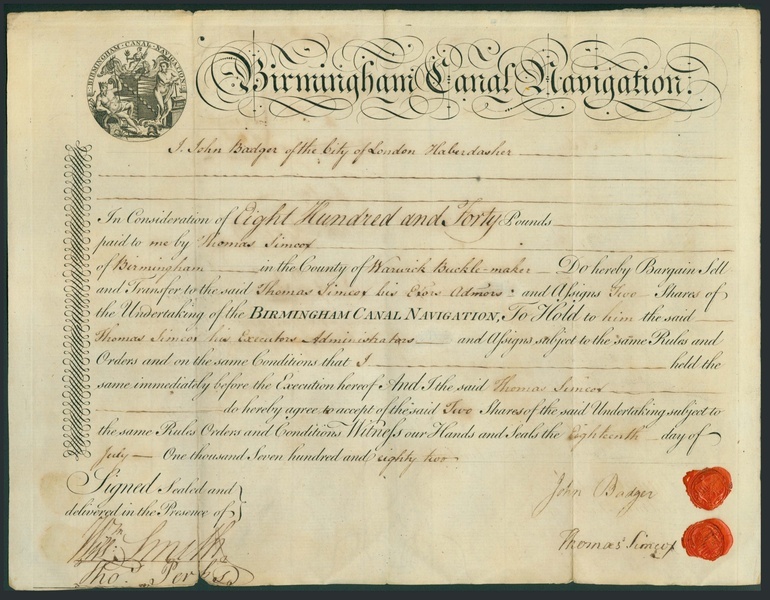 BIRMINGHAM · CANAL · NAVIGATION
Birmingham Canal Navigation.
I, John Badger of the City of London Haberdasher
In Consideration of Eight Hundred and Forty Pounds
paid to me by Thomas Simcox
of Birmingham in the County of Warwick Buckle-maker Do hereby Bargain Sell
and Transfer to the said Thomas Simcox his Exors Admors: and Assigns Two Shares of
the Undertaking of the BIRMINGHAM CANAL NAVIGATION, To Hold to him the said
Thomas Simcox his Executors Administrators and Assigns subject to the same Rules and
Orders and on the same Conditions that I held the
same immediately before the Execution hereof And I the said Thomas Simcox
do hereby agree to accept of the said Two Shares of the said Undertaking subject to
the same Rules Orders and Conditions Witness our Hands and Seals the Eighteenth day of
July One thousand Seven hundred and eighty two
Signed Sealed and
delivered in the Presence of
John Badger
Thomas Simcox
Wm. Smith
Tho.